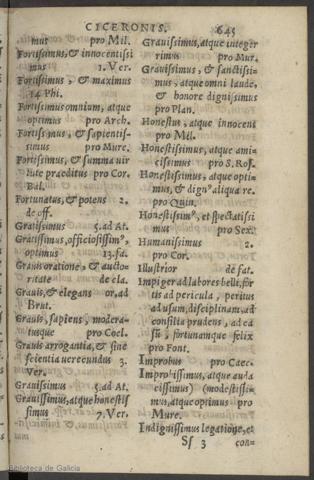 CICERONIS. 645
mus pro Mil.
Fortissimus, & innocentissi
mus 1. Ver.
Fortissimus, & maximus
14 Phi.
Fortissimus omnium, atque
optimus pro Arch.
Fortissimus, & sapientis-
simus pro Mure.
Fortissimus, & summa vir
tute præditus pro Cor.
Bal.
Fortunatus, & potens 2.
de off.
Gratissimus 5. ad At.
Gratissimus, officiosissim⁹,
optimus 13. fa.
Grauis oratione, & aucto-
ritate de cla.
Grauis, & elegans or, ad
Brut.
Grauis, sapiens, modera-
tusque pro Cœl.
Grauis arrogantia, & sine
scientia uerecundus 3.
Ver.
Grauissimus 5. ad At.
Grauissimus, atque honestis
simus 7. Ver.
Grauissimus, atque integer
rimus pro Mur.
Grauissimus, & sanctissi-
mus, atque omni laude,
& honore dignissimus
pro Plan.
Honestus, atque innocens
pro Mil.
Honestissimus, atque ami-
cissimus pro S. Ros.
Honestissimus, atque opti-
mus, & dign⁹ aliqua re.
pro Quin.
Honestissim⁹, et spectatissi
mus pro Sex.
Humanissimus 2.
pro Cor.
Illustrior de fat.
Impiger ad labores belli, for
tis ad pericula, peritus
ad usum, disciplinam, ad
consilia prudens, ad ca
sũ, fortunamque felix
pro Font.
Improbus pro Cæc.
Improbissimus, atque auda
cissimus) (modestissi-
mus, atque optimus pro
Mure.
Indignissimus legatione, et
Sſ 3 con=
Biblioteca de Galicia